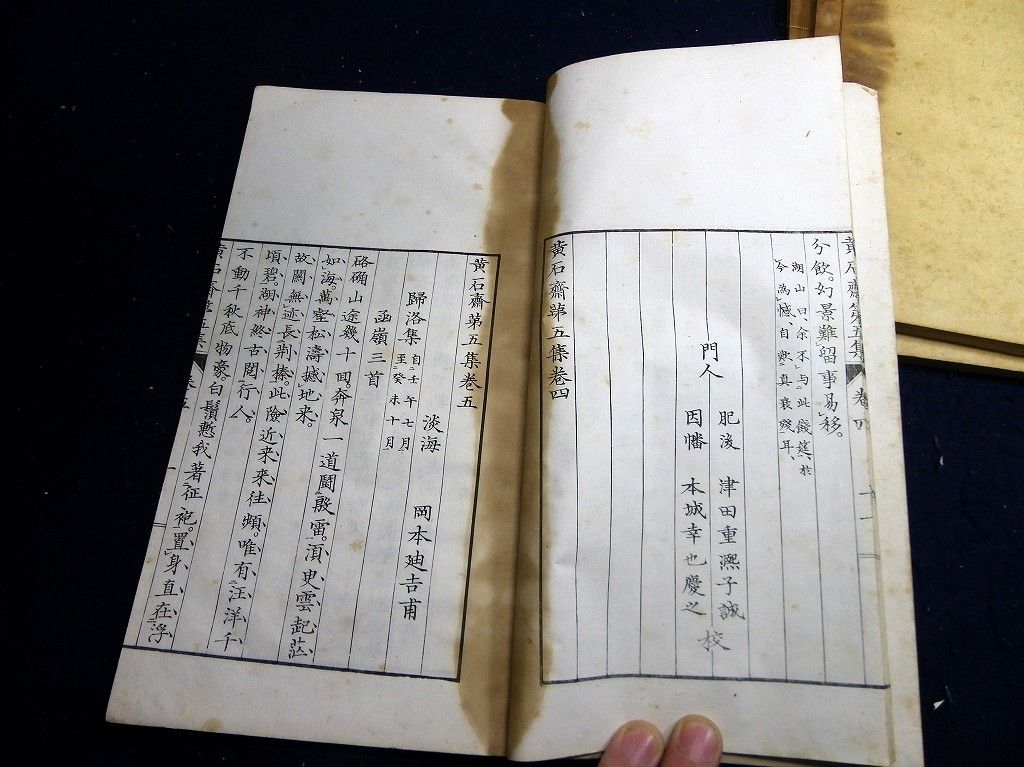 黃石齋第五集 卷四 十一
分飲。幻景難留事易移。
湖山曰、余不与此餞筵、於
今為憾、自歎真衰殘耳、
肥後 津田重熈子誠
門人
因幡 本城幸也慶之
校
黃石齋第五集卷四
黃石齋第五集卷五
淡海 岡本廸吉甫
歸洛集 自壬午七月
至癸未十月
函嶺三首
硌确山途幾十回。奔泉一道鬪殷雷。須臾雲起茫
如海。萬壑松濤撼地来。
故關無迹長荆榛。此險近来来往頻。唯有汪洋千
頃碧。湖神終古閲行人。
不動千秋底物豪。白鬚慙我著征袍。置身直在浮
黃石齋第五集 卷五 一